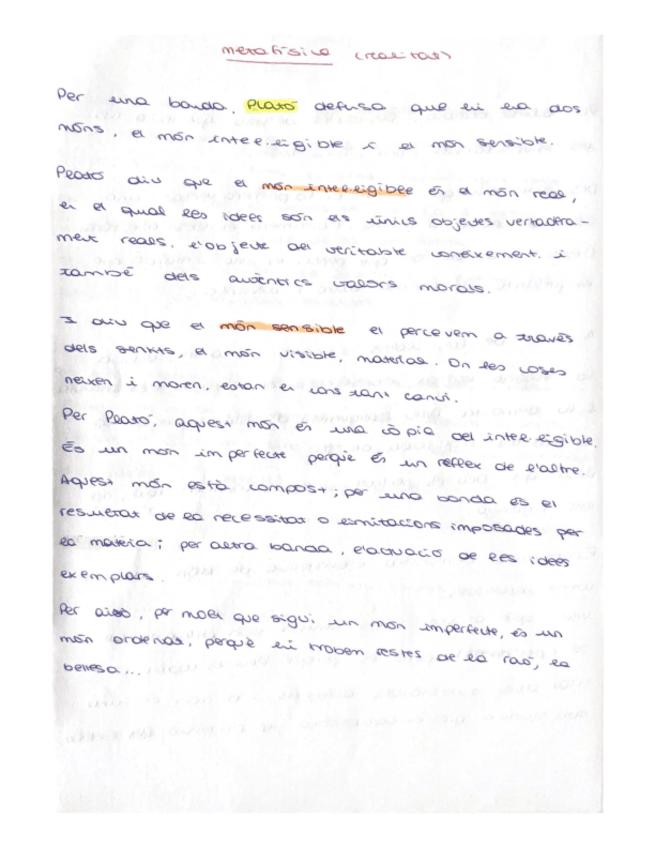 metafísica (realitat)
Per una banda, Plató defensa que hi ha dos
móns, el món intel·ligible i el món sensible.
Plató diu que el món intel·ligible és el món real,
en el qual les idees són els únics objectes vertadera-
ment reals, l'objecte del veritable coneixement i
també dels autèntics valors morals.
I diu que el món sensible el percevem a través
dels sentits, el món visible, material. On les coses
neixen i moren, estan en constant canvi.
Per Plató, aquest món és una còpia del intel·ligible.
És un món imperfecte perquè és un reflex de l'altre.
Aquest món està compost; per una banda és el
resultat de la necessitat o limitacions imposades per
la matèria; per altra banda, l'actuació de les idees
exemplars.
Per això, per molt que sigui un món imperfecte, és un
món ordenat, perquè hi trobem restes de la raó, la
bellesa...